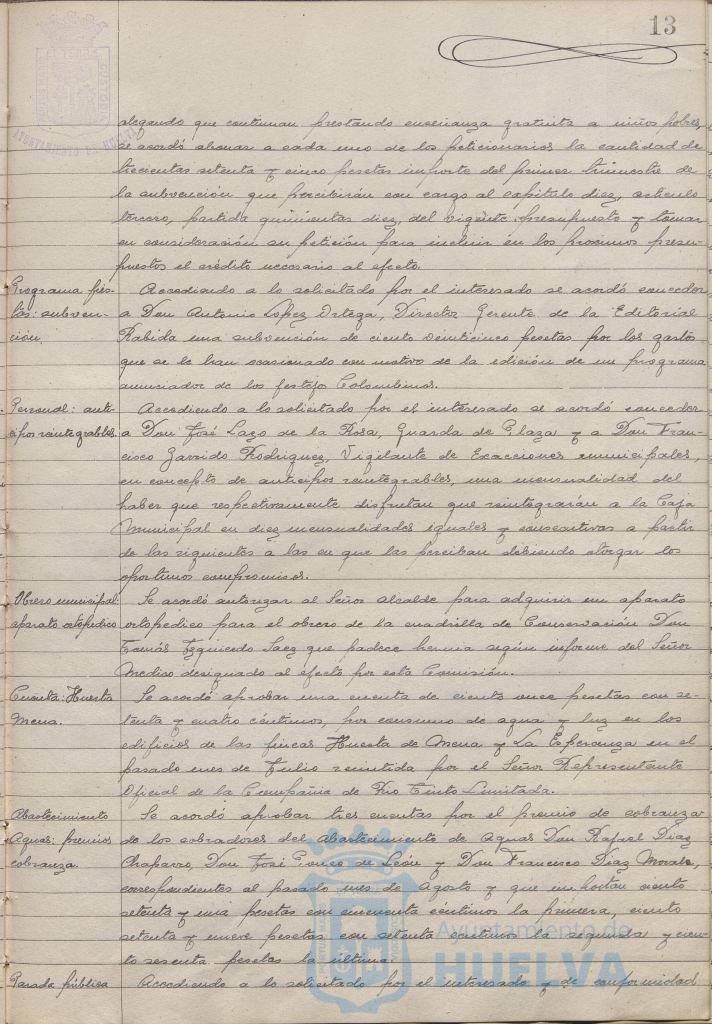 13
AYUNTAMIENTO DE HUELVA
alegando que continuan prestando enseñanza gratuita a niños pobres,
se acordó abonar a cada uno de los peticionarios la cantidad de
trecientas setenta y cinco pesetas importe del primer trimestre de
la subvención que percibirán con cargo al capitulo diez, articulo
tercero, partida quinientas diez, del vigente presupuesto y tomar
en consideración su petición para incluir en los proximos presu-
puestos el crédito necesario al efecto.
Programa fies-
tas: subven-
ción.
Accediendo a lo solicitado por el interesado se acordó conceder
a Don Antonio López Ortega, Director Gerente de la Editorial
Rabida una subvención de ciento veinticinco pesetas por los gastos
que se le han ocasionado con motivo de la edición de un programa
anunciador de los festejos Colombinos.
Personal: anti-
cipos reintegrables.
Accediendo a lo solicitado por el interesado se acordó conceder
a Don José Lazo de la Rosa, Guarda de Plaza y a Don Fran-
cisco Garrido Rodriguez, Vigilante de Exacciones municipales,
en concepto de anticipos reintegrables, una mensualidad del
haber que respectivamente disfrutan que reintegrarán a la Caja
Municipal en diez mensualidades iguales y consecutivas a partir
de las siguientes a las en que las perciban debiendo otorgar los
oportunos compromisos.
Obrero municipal:
aparato ortopedico
Se acordó autorizar al Señor Alcalde para adquirir un aparato
ortopedico para el obrero de la cuadrilla de Conservación Don
Tomás Izquierdo Saez que padece hernia según informe del Señor
Medico designado al efecto por esta Comisión.
Cuenta: Huerta
Mena.
Se acordó aprobar una cuenta de ciento once pesetas con se-
tenta y cuatro céntimos, por consumo de agua y luz en los
edificios de las fincas Huerta de Mena y La Esperanza en el
pasado mes de Julio remitida por el Señor Representante
Oficial de la Compañia de Rio Tinto Limitada.
Abastecimiento
Aguas: premios
cobranza.
Se acordó aprobar tres cuentas por el premio de cobranza
de los cobradores del Abastecimiento de Aguas Don Rafael Diaz
Chaparro, Don José Ponce de León y Don Francisco Diaz Morales,
correspondientes al pasado mes de Agosto y que importan ciento
setenta y una pesetas con cincuenta céntimos la primera, ciento
setenta y nueve pesetas con setenta centimos la segunda y cien-
to sesenta pesetas la última.
Parada pública
Accediendo a lo solicitado por el interesado y de conformidad
Ayuntamiento de
HUELVA